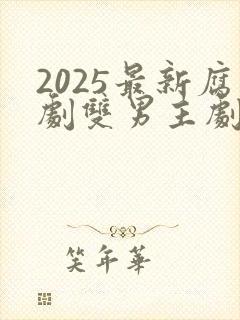 2025最新腐
劇雙男主劇
笑年華